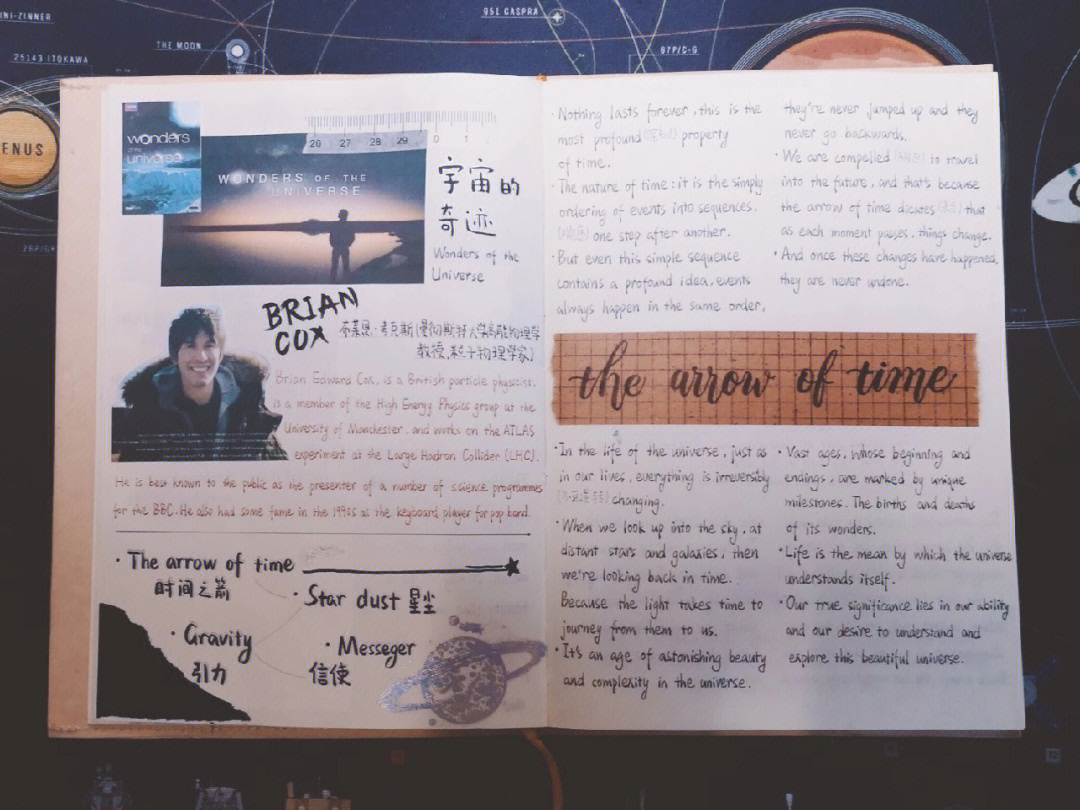 INI-ZINNER
951 GASPRA
THE MOON
25143 ITOKAWA
67P/C-G
ENUS
wonders
of the
universe
WONDERS OF THE
UNIVERSE
26 27 28 29 0 1
宇宙的
奇迹
Wonders of the
Universe
BRIAN
COX
布莱恩·考克斯(曼彻斯特大学高能物理学
教授,粒子物理学家)
Brian Edward Cox, is a British particle physicist,
is a member of the High Energy Physics group at the
University of Manchester, and works on the ATLAS
experiment at the Large Hadron Collider (LHC).
He is best known to the public as the presenter of a number of science programmes
for the BBC. He also had some fame in the 1990s as the keyboard player for pop band.
· The arrow of time
时间之箭
· Star dust 星尘
· Gravity
引力
· Messeger
信使
· Nothing lasts forever, this is the
most profound (深刻) property
of time.
· The nature of time: it is the simply
ordering of events into sequences.
one step after another.
· But even this simple sequence
contains a profound idea, events
always happen in the same order,
they're never jumped up and they
never go backwards.
· We are compelled to travel
into the future, and that's because
the arrow of time dicates that
as each moment passes, things change.
· And once these changes have happened,
they are never undone.
the arrow of time
· In the life of the universe, just as
in our lives, everything is irreversibly
changing.
· When we look up into the sky, at
distant stars and galaxies, then
we're looking back in time.
Because the light takes time to
journey from them to us.
· It's an age of astonishing beauty
and complexity in the universe.
· Vast ages, whose beginning and
endings, are marked by unique
milestones. The births and deaths
of its wonders.
· Life is the mean by which the universe
understands itself.
· Our true significance lies in our ability
and our desire to understand and
explore this beautiful universe.